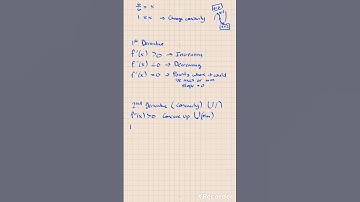 = x
1 < x → Change concavity
1st Derivative
f'(x) > 0 → Increasing
f'(x) < 0 → Decreasing
f'(x) = 0 → Points where it could
be max or min
slope = 0
2nd Derivative (concavity) ∪/∩
f"(x) > 0 Concave up ∪ (min)